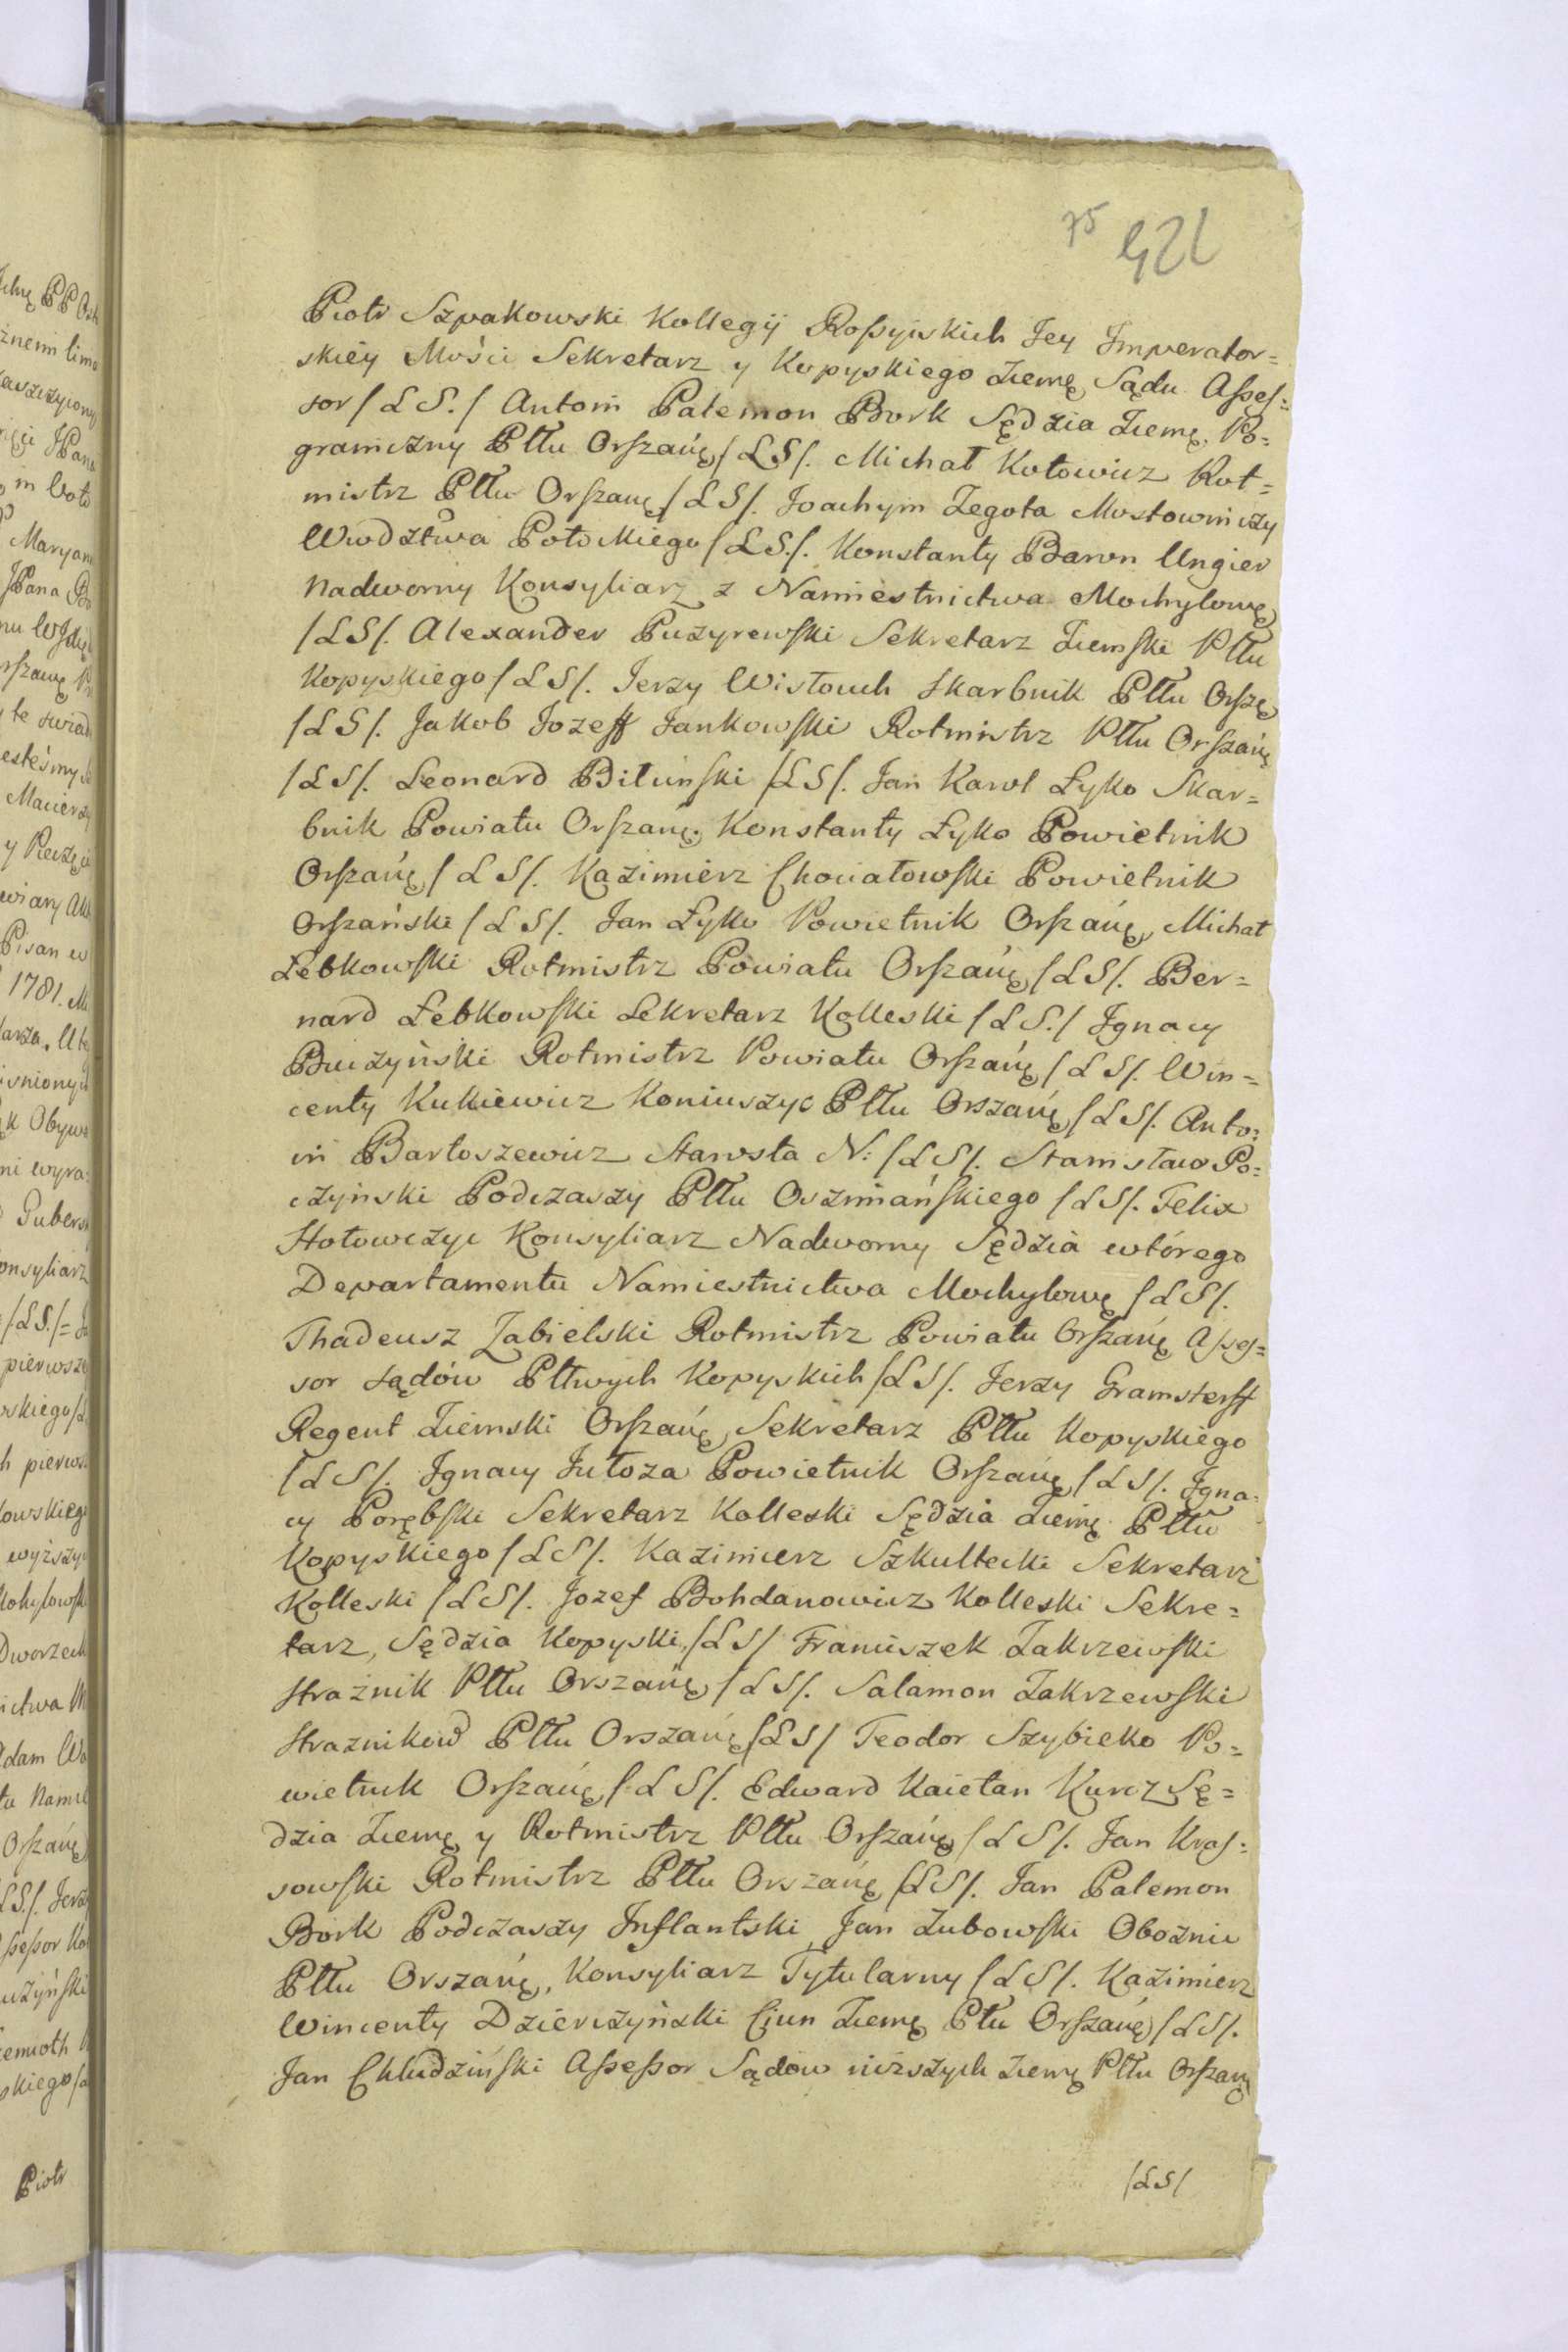 75 421
Piotr Szpakowski Kollegij Roſsyiskich Jey Imperator=
skiey Mości Sekretarz y Kopyskiego Ziemę Sądu Aſseſ=
sor /L S./ Antoni Palemon Bork Sędzia Ziemę. Po=
graniczny Pttu Orſzańę /L S/. Michał Kotowicz Rot=
mistrz Pttu Orſzanę /L S/. Joachym Zegota Mostowniczy
Wwodztwa Połockiego /L S./. Konstanty Baron Ungier
Nadworny Konsyliarz z Namiestnictwa Mochylowę
/L S/. Alexander Puzyrewſki Sekretarz Ziemſki Pttu
Kopyskiego /L S/. Jerzy Wisłouch Skarbnik Pttu Orſzę
/L S/. Jakob Jozeff Jankowſki Rotmistrz Pttu Orſzańę
/L S/. Leonard Biluńſki /L S/. Jan Karol Łyko Skar=
bnik Powiatu Orſzanę. Konstanty Łyko Powietnik
Orſzańę /L S/. Kazimierz Chociatowſki Powietnik
Orſzański /L S/. Jan Łyko Powietnik Orſzańę, Michał
Łebkowſki Rotmistrz Powiatu Orſzańę /L S/. Ber=
nard Łebkowſki Sekretarz Kolleski /L S./ Jgnacy
Buczyński Rotmistrz Powiatu Orſzańę /L S/. Win=
centy Kukiewicz Koniuszyc Pttu Orszańę /L S/. Anto=
ni Bartoszewicz Starosta N: /L S/. Stanisław Po=
czyński Podczaszy Pttu Oszmiańſkiego /L S/. Felix
Hołowczyc Konsyliarz Nadworny Sędzia wtórego
Departamentu Namiestnictwa Mochylowę /L S/.
Thadeusz Zabielski Rotmistrz Powiatu Orſzańę Aſseſ=
sor Sądów Pttwych Kopyskich /L S/. Jerzy Gramsterff
Regent Ziemski Orſzańę, Sekretarz Pttu Kopyskiego
/L S/. Jgnacy Jutoza Powietnik Orſzańę /L S/. Jgna=
cy Porębſki Sekretarz Kolleski Sędzia Ziemę Pttu
Kopyskiego /L S/. Kazimierz Szkultecki Sekretarz
Kolleski /L S/. Jozef Bohdanowicz Kolleski Sekre=
tarz, Sędzia Kopyski, /L S/ Franciszek Zakrzewſki
Straznik Pttu Orszańę /L S/. Salamon Zakrzewſki
Straznikow Pttu Orszańę /L S/ Teodor Szybieko Po=
wietnik Orſzańę /L S/. Edward Kaietan Kurcz Sę=
dzia Ziemę y Rotmistrz Pttu Orſzańę /L S/. Jan Kraſ=
sowſki Rotmistrz Pttu Orszańę /L S/. Jan Palemon
Bork Podczaszy Inflantski, Jan Zubowſki Oboznic
Pttu Orszańę, Konsyliarz Tytularny /L S/. Kazimierz
Wincenty Dzierczyński Ciun Ziemę Pttu Orſzańę /L S/.
Jan Chludzińſki Aſseſsor Sądow nizszych Ziemę Pttu Orſzanę
/L S/